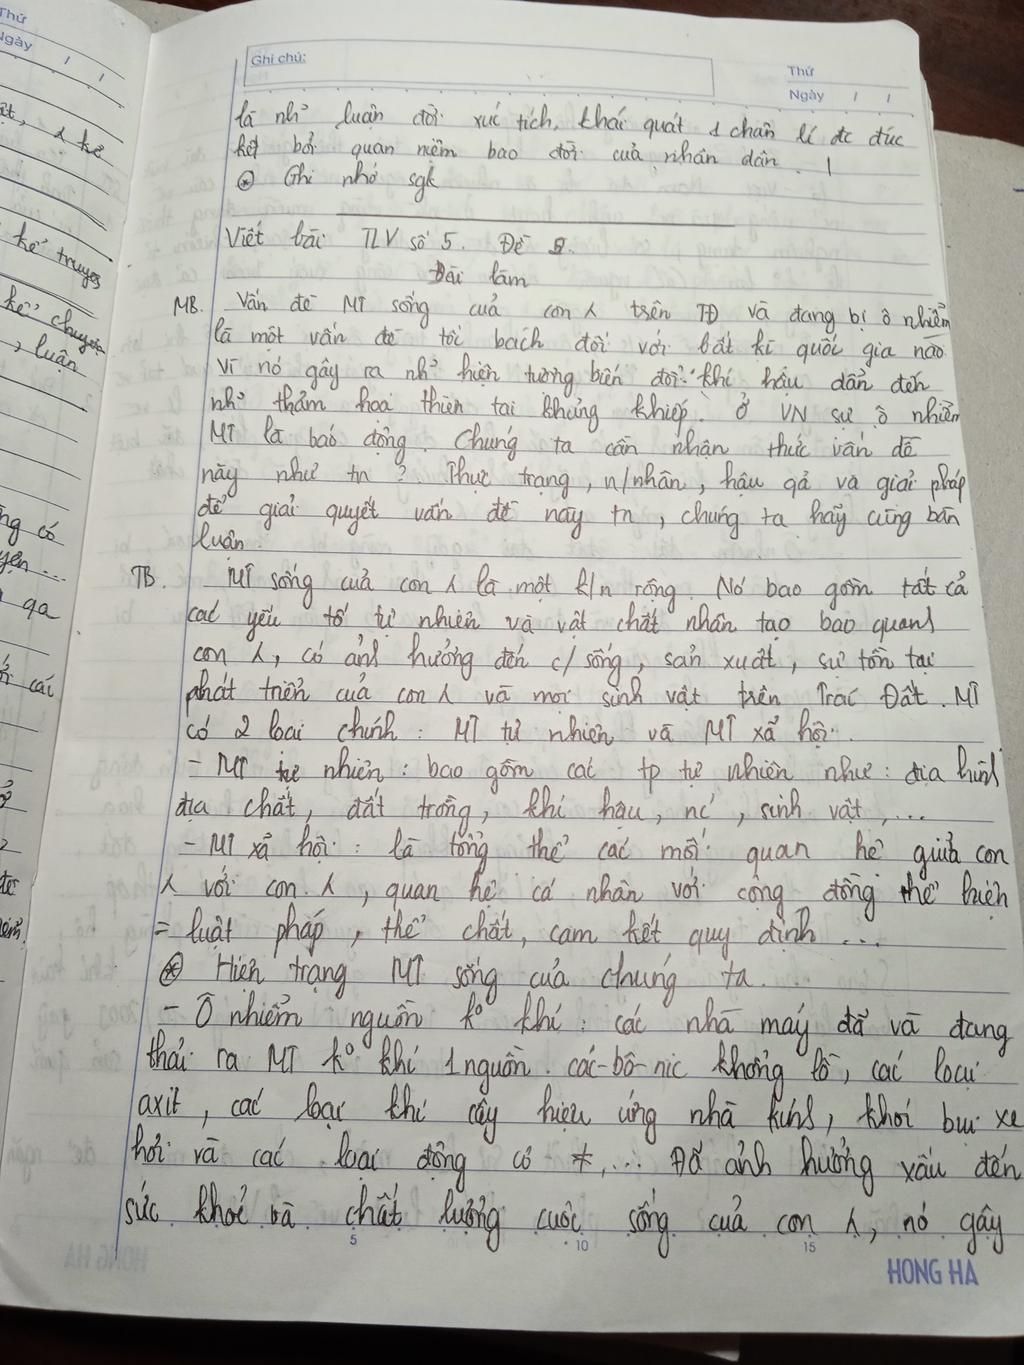 Thứ
Ngày / /
ất, λ kể
kể truyện
kể chuyện
, luận
ng có
yện ...
qa
các
Ghi chú:
Thứ
Ngày / /
là nh~ luận đời xúc tích, khái quát 1 chân lí đc đúc
kết bởi quan niệm bao đời của nhân dân.
⊛ Ghi nhớ sgk
Viết bài TLV số 5. Đề
Bài làm
MB. Vấn đề MT sống của con λ trên TĐ và đang bị ô nhiễm
là một vấn đề tồi bách đối với bất kì quốc gia nào
Vì nó gây ra nh~ hiện tượng biến đổi khí hậu dẫn đến
nh~ thảm hoạ thiên tai khủng khiếp. Ở VN sự ô nhiễm
MT là báo động. Chúng ta cần nhận thức vấn đề
này như tn ? Thực trạng, n/nhân, hậu qả và giải pháp
để giải quyết vấn đề này tn, chúng ta hãy cùng bàn
luận.
TB. MT sống của con λ là một k/n rộng. Nó bao gồm tất cả
các yếu tố tự nhiên và vật chất nhân tạo bao quanh
con λ, có ảnh hưởng đến c/sống, sản xuất, sự tồn tại
phát triển của con λ và mọi sinh vật trên Trái Đất. MT
có 2 loại chính : MT tự nhiên và MT xã hội.
- MT tự nhiên : bao gồm các tp tự nhiên như : địa hình
địa chất, đất trồng, khí hậu, nc', sinh vật, ...
- MT xã hội : là tổng thể các mối quan hệ giữa con
λ với con λ, quan hệ cá nhân với cộng đồng thể hiện
= luật pháp, thể chất, cam kết quy định ...
⊛ Hiện trạng MT sống của chúng ta.
- Ô nhiễm nguồn k° khí : các nhà máy đã và đang
thải ra MT k° khí 1 nguồn các-bô-nic khổng lồ, các loại
axit, các loại khí gây hiệu ứng nhà kính, khói bụi xe
hơi và các loại động cơ ≠, ... Đã ảnh hưởng xấu đến
sức khoẻ và chất lượng cuộc sống của con λ, nó gây
5 10 15
HONG HA
HONG HA